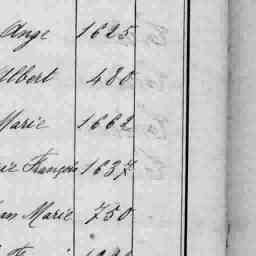 Ange 1625
Albert 480
Marie 1662
François 1637
Marie 750